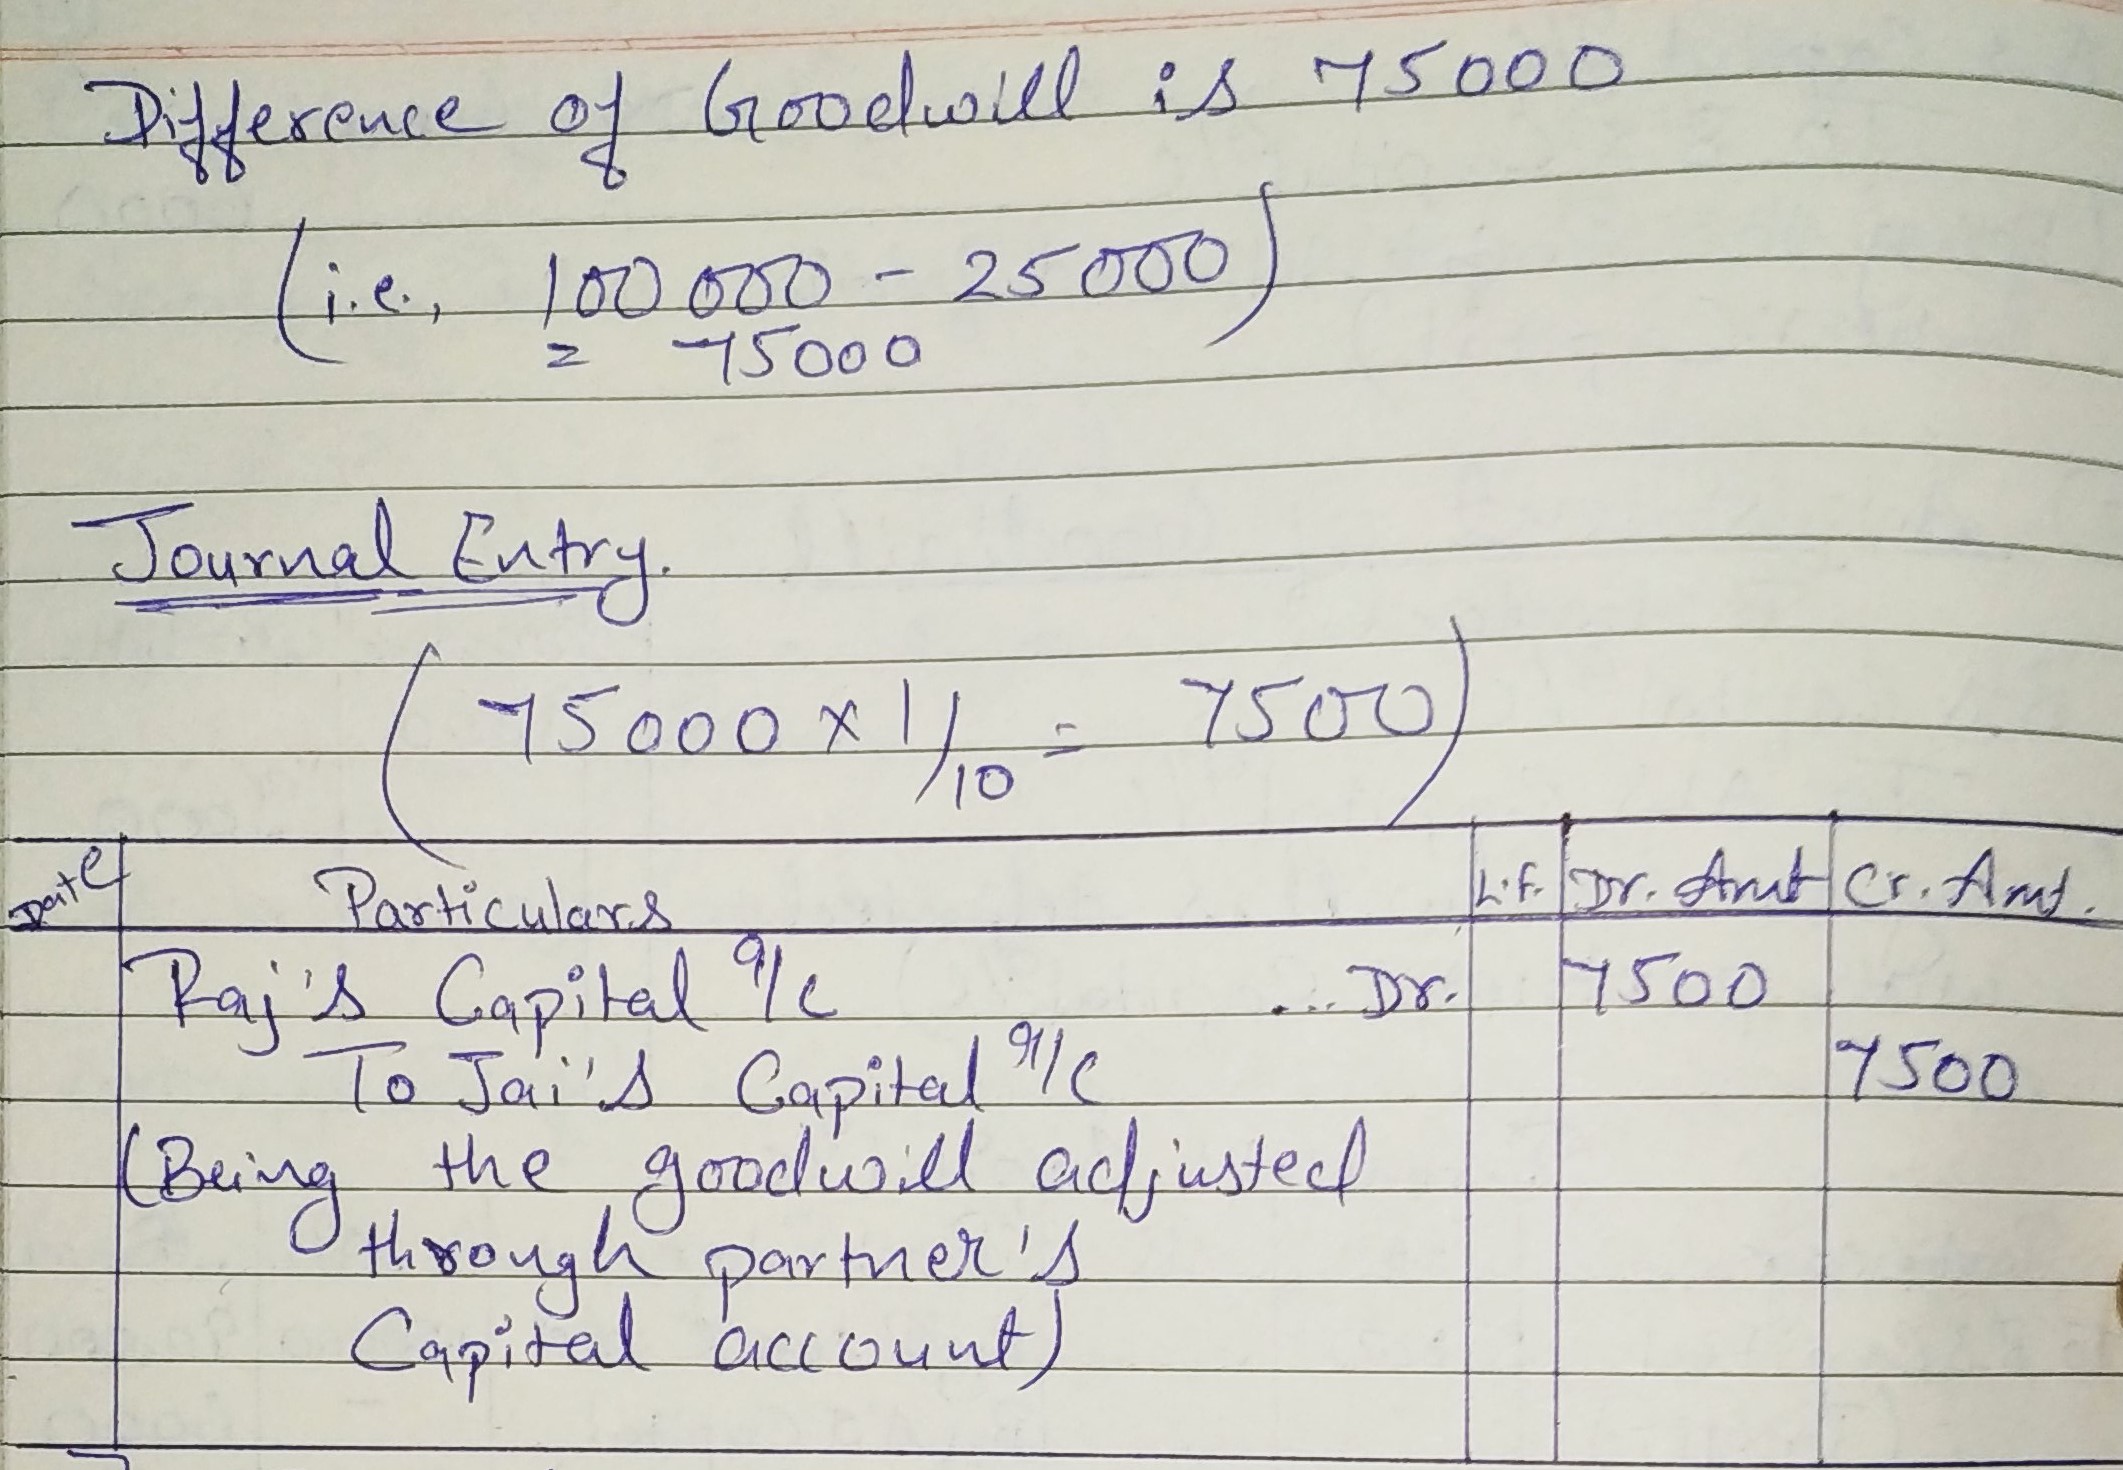 Difference of Goodwill is 75000
(i.e., 100000 - 25000)
= 75000
Journal Entry.
(75000 x 1/10 = 7500)
Date Particulars L.F. Dr. Amt Cr. Amt.
Raj's Capital a/c ... Dr. 7500
To Jai's Capital a/c 7500
(Being the goodwill adjusted
through partner's
Capital account)